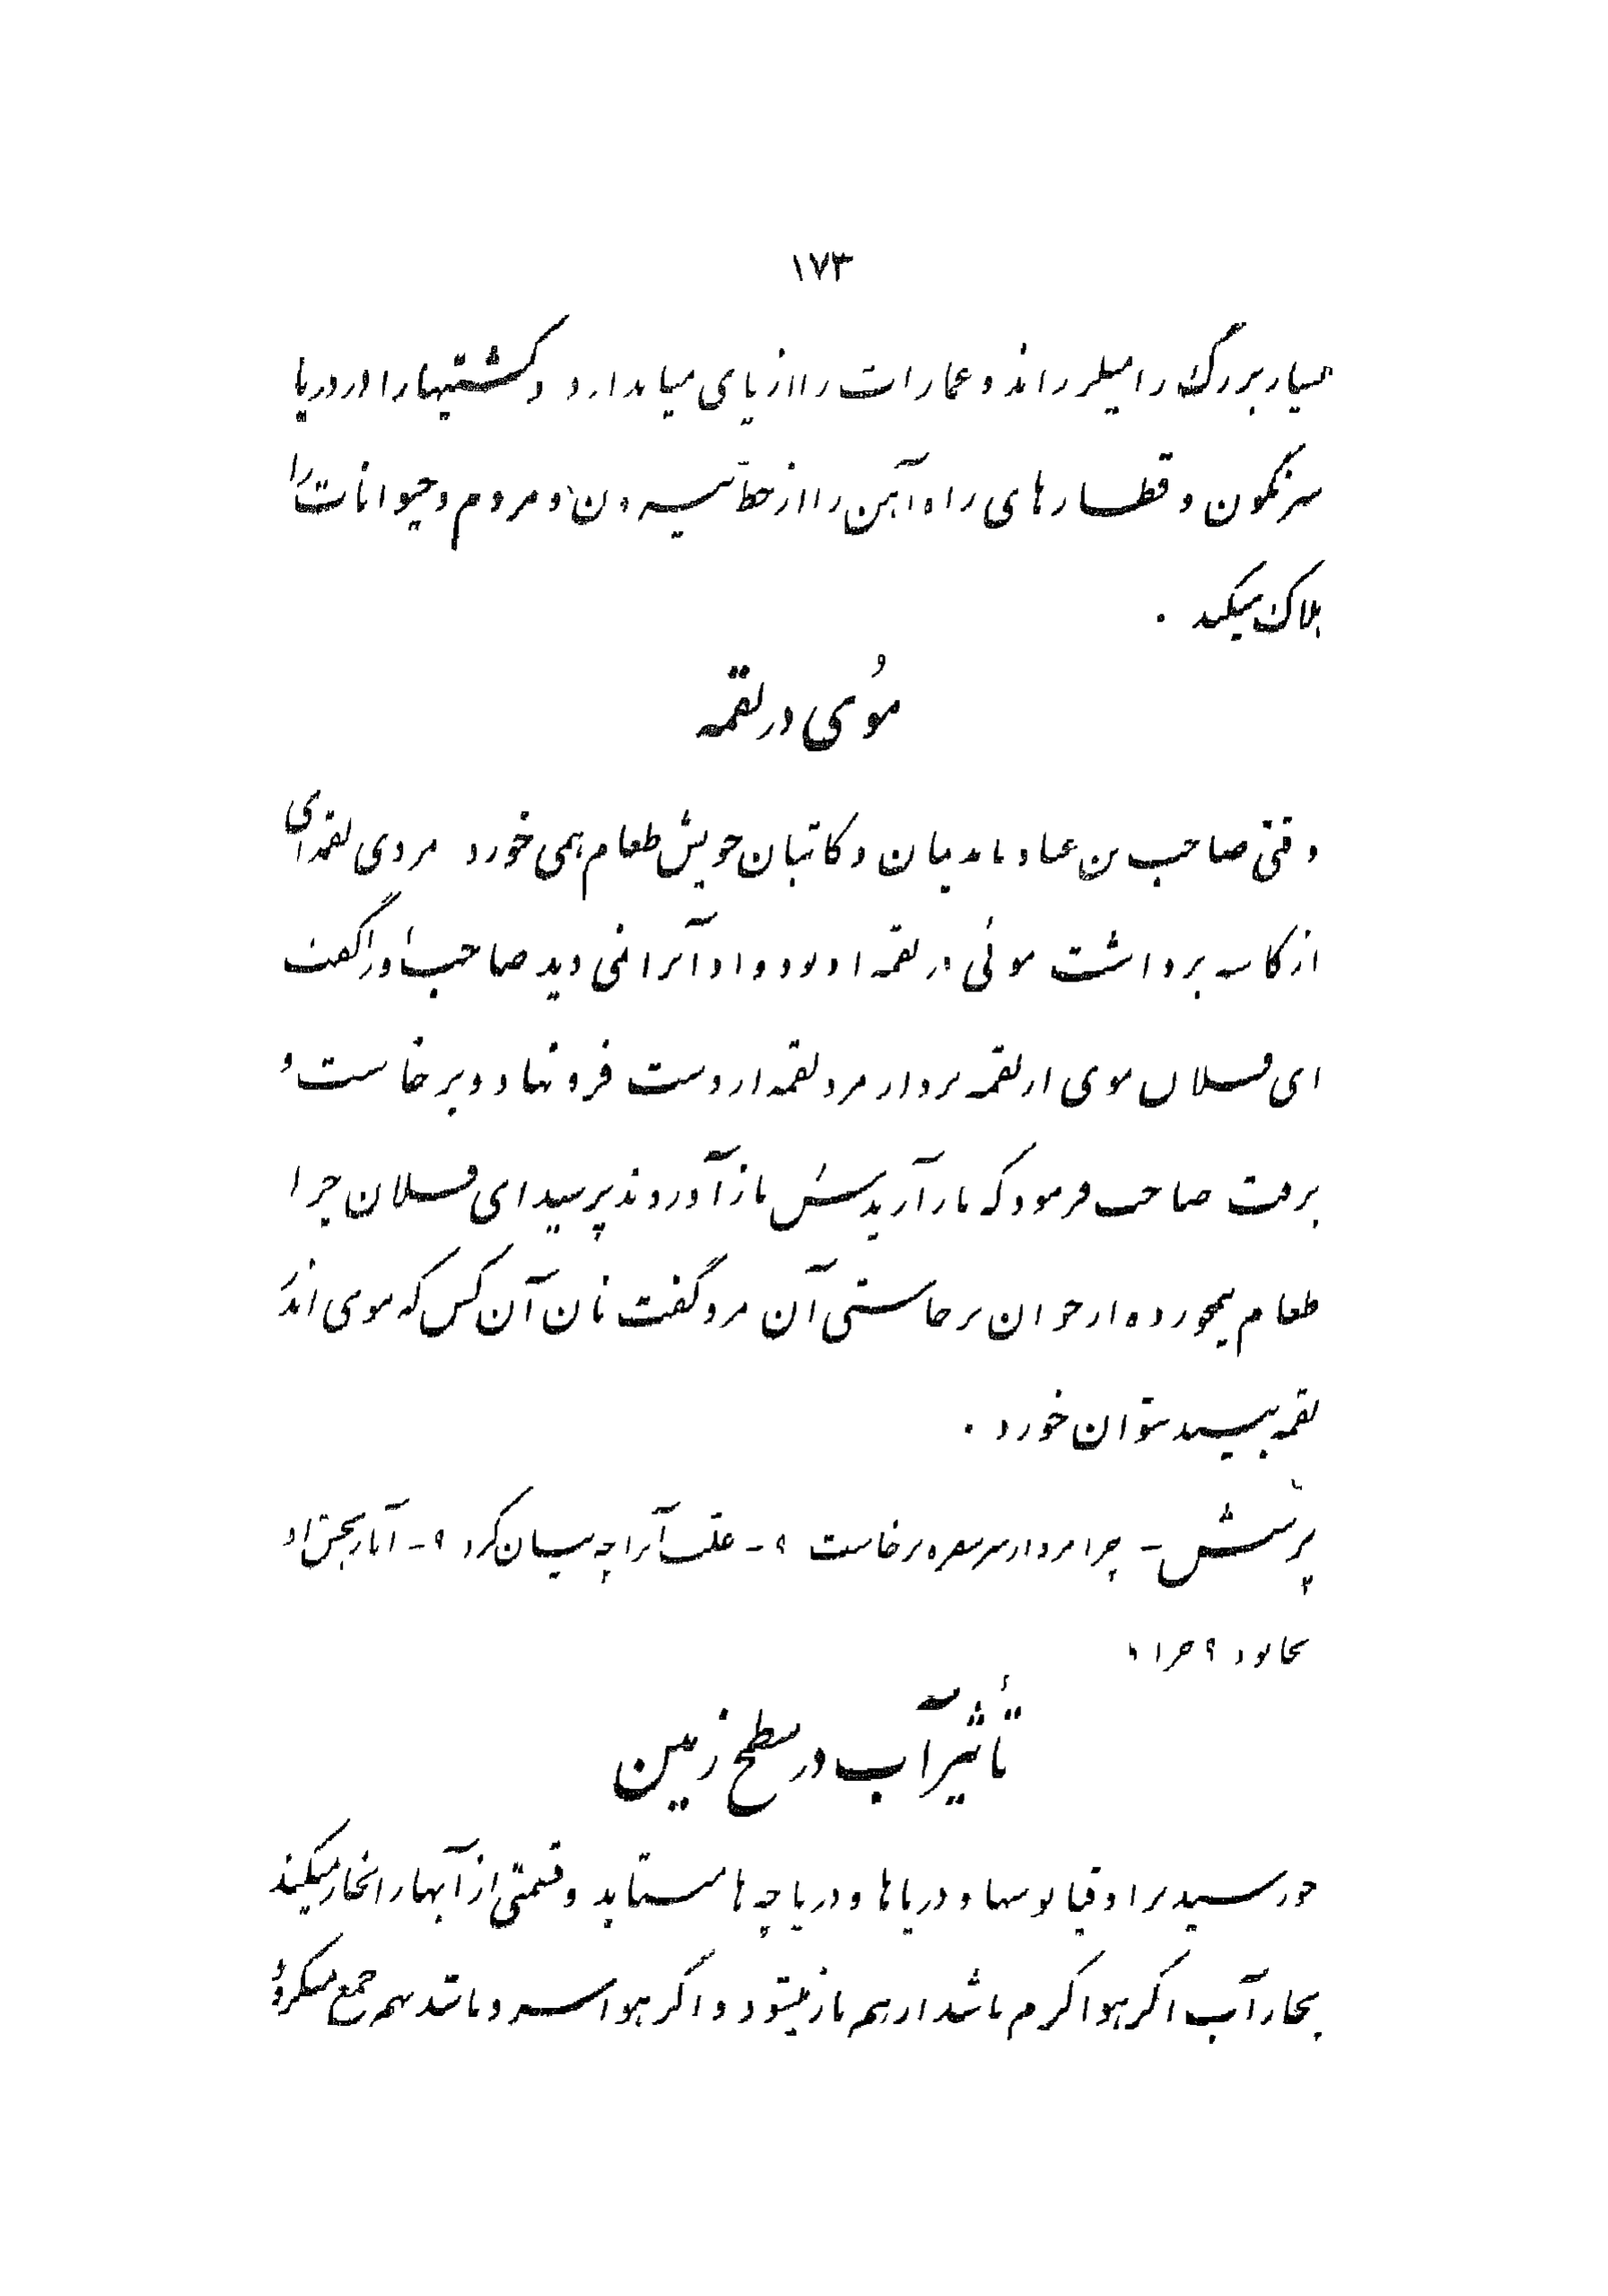 ۱۷۳
بسیار بزرگ را میلرزاند و عمارات را از پای میاندازد و کشتیها را در دریا
سرنگون و قطارهای راه آهن را از خط بیرون و مردم و حیوانات را
هلاک میکند .
موُی در لقمه
وقتی صاحب بن عباد با ندیمان و کاتبان خویش طعام همی خورد مردی لقمه‌ای
از کاسه برداشت موئی در لقمه او بود و او آنرا نمی دید صاحب او را گفت
ای فلان موی از لقمه بردار مرد لقمه از دست فرو نهاد و برخاست و
برفت صاحب فرمود که باز آریدش باز آوردند پرسید ای فلان چرا
طعام نیمخورده از خوان برخاستی آن مرد گفت نان آن کس که موی اندر
لقمه ببیند نتوان خورد .
پرسش - چرا مرد از سر سفره برخاست ؟ - علت آنرا چه بیان کرد ؟ - آیا رنجش او
بجا بود ؟ چرا ؟
تأثیر آب در سطح زمین
خورشید بر اوقیانوسها و دریاها و دریاچه ها میتابد و قسمتی از آبها را بخار میکند
بخار آب اگر هوا گرم باشد از هم باز میشود و اگر هوا سرد باشد بهم جمع میگردد